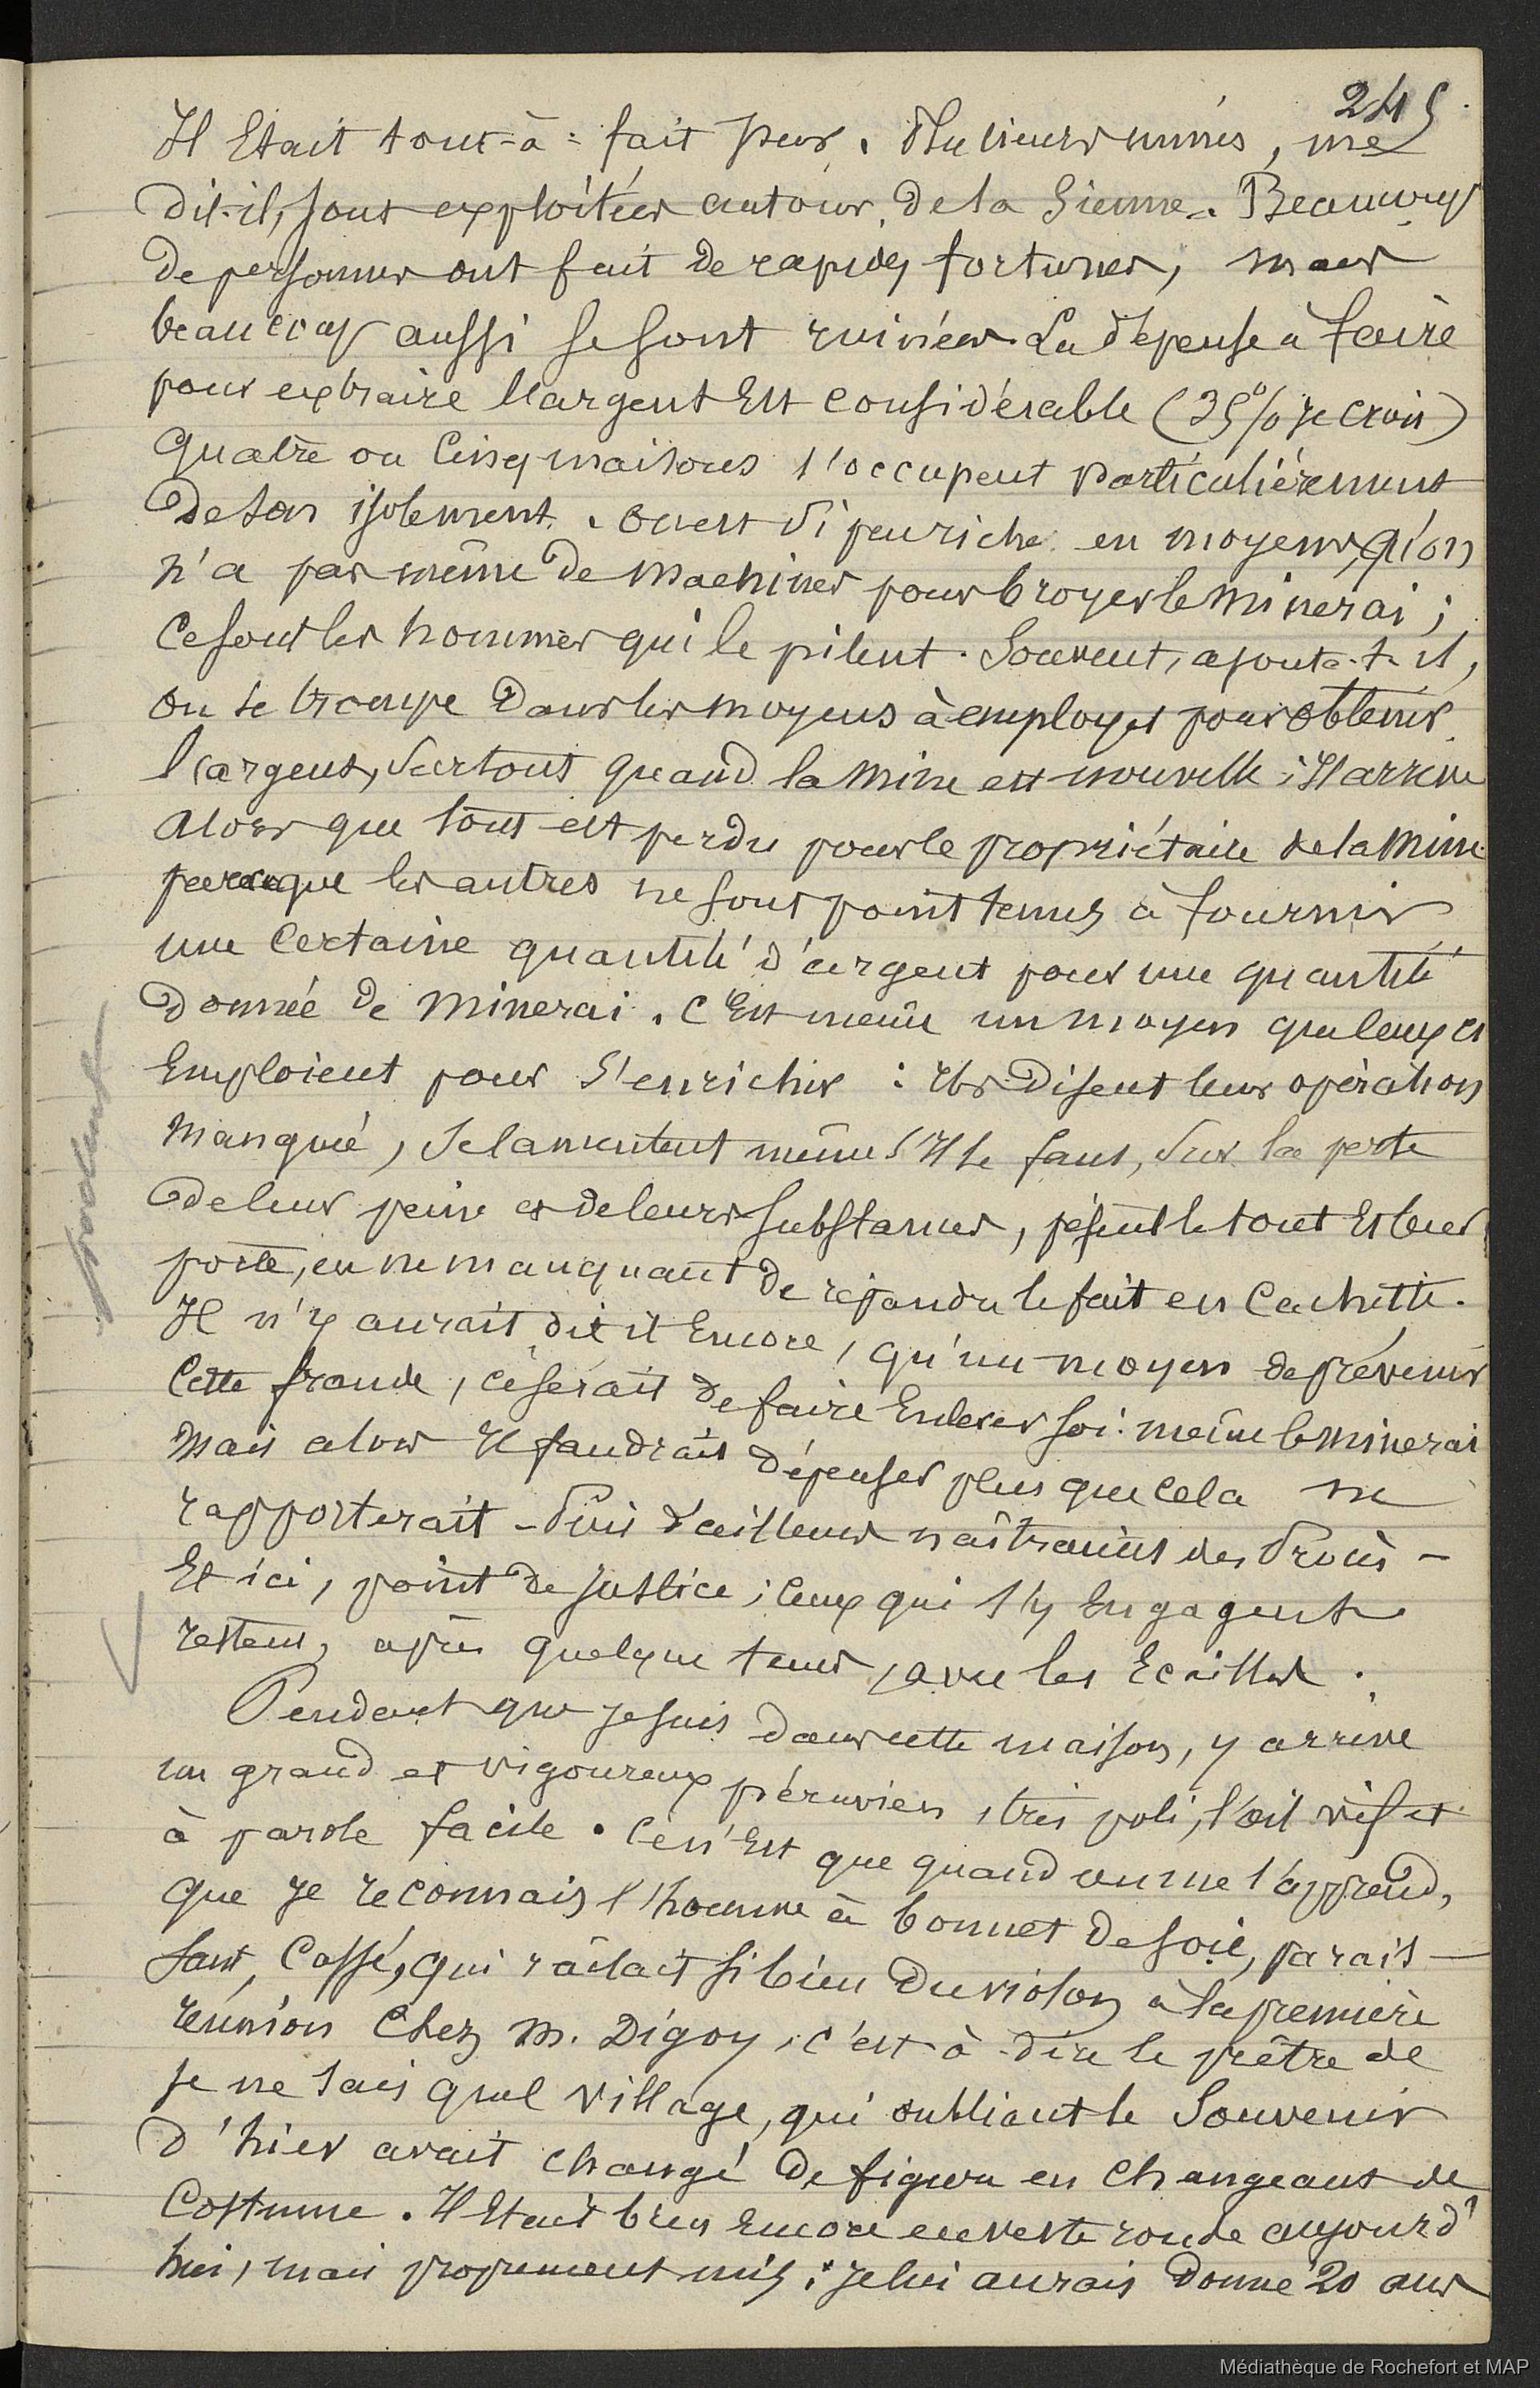 245
Il Etait tout-à-fait pur. Plusieurs mines, me
dit-il, sont exploitées autour de la Sienne. Beaucoup
de personnes ont fait de rapides fortunes, mais
beaucoup aussi se sont ruinées. La dépense à faire
pour extraire l'argent Est considérable (35% je crois)
Quatre ou Cinq maisons s'occupent particulièrement
de son isolement. on est si peu riche en moyens, qu'on
n'a pas même de machines pour broyer le minerai ;
Ce sont les hommes qui le pilent. Souvent, ajoute-t-il,
on se trompe dans les moyens à employer pour obtenir
l'argent, surtout quand la mine est nouvelle ; Il arrive
alors que tout est perdu pour le propriétaire de la mine
parce que les autres ne sont point tenus à fournir
une Certaine quantité d'argent pour une quantité
donnée de minerai. C'Est même un moyen que ceux ci
Emploient pour s'enrichir : Ils disent leur opération
manquée, se lamentent même s'Il le faut, sur la perte
de leur peine et de leurs substances, jettent le tout Et leur
porte, en ne manquant de répandu le fait en Cachette.
Il n'y aurait dit il Encore, qu'un moyen de prévenir
Cette fraude, ce serait de faire Enlever soi-même le minerai
Mais alors Il faudrait dépenser plus que cela ne
rapporterait - Puis d'ailleurs naîtraient des Procès -
Et ici, point de justice ; Ceux qui s'y Engagent
restent, après quelque tems, avec les Ecailles.
Pendant que je suis dans cette maison, y arrive
un grand et vigoureux péruvien, très poli, l'œil vif et
à parole facile. Ce n'Est que quand on me l'apprend,
que je reconnais l'homme à bonnet de soie, parais-
sant Cassé, qui râclait si bien du violon à la première
réunion Chez M. Digoy, c'est-à-dire le prêtre de
je ne sais quel village, qui oubliant le Souvenir
d'hier avait changé de figure en Changeant de
Costume. Il Etait bien Encore en veste ronde aujourd'
hui, mais proprement mis ; je lui aurais donné 20 ans
Médiathèque de Rochefort et MAP